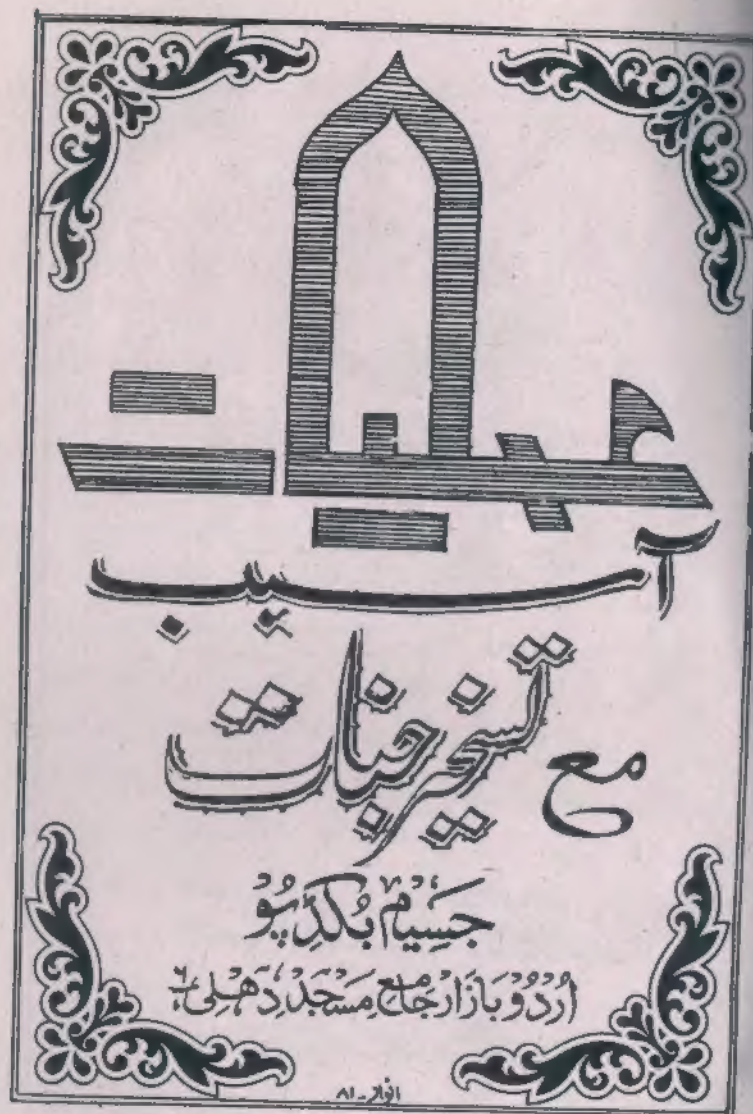 عملیات
آسیب
مع تسخیر جنات
جسیم بکڈپو
اردو بازار جامع مسجد دهلی ۶
انوار۔۸۱